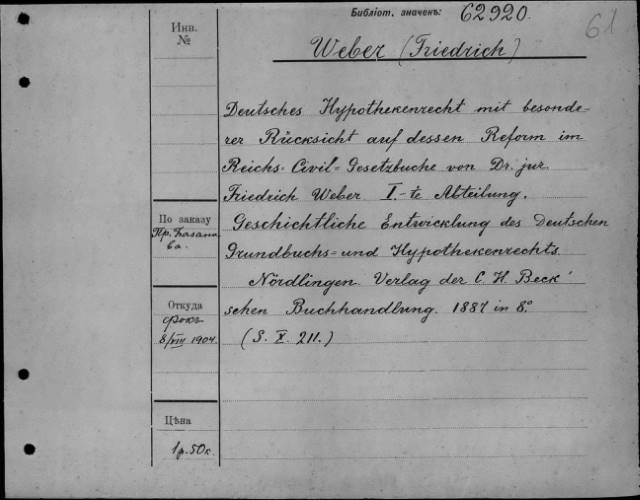 Библіот. значекъ: 62920.
61
Инв.
№
Weber (Friedrich)
Deutsches Hypothekenrecht mit besonde-
rer Rücksicht auf dessen Reform im
Reichs-Civil-Gesetzbuche von Dr. jur.
Friedrich Weber I.-te Abteilung.
По заказу
Пр. Базана
ва.
Geschichtliche Entwicklung des Deutschen
Grundbuchs- und Hypothekenrechts.
Nördlingen. Verlag der C. H. Beck'
schen Buchhandlung. 1887 in 8.°
(S. X. 211.)
Откуда
8/VIII 1904.
Цѣна
1 р. 50 к.